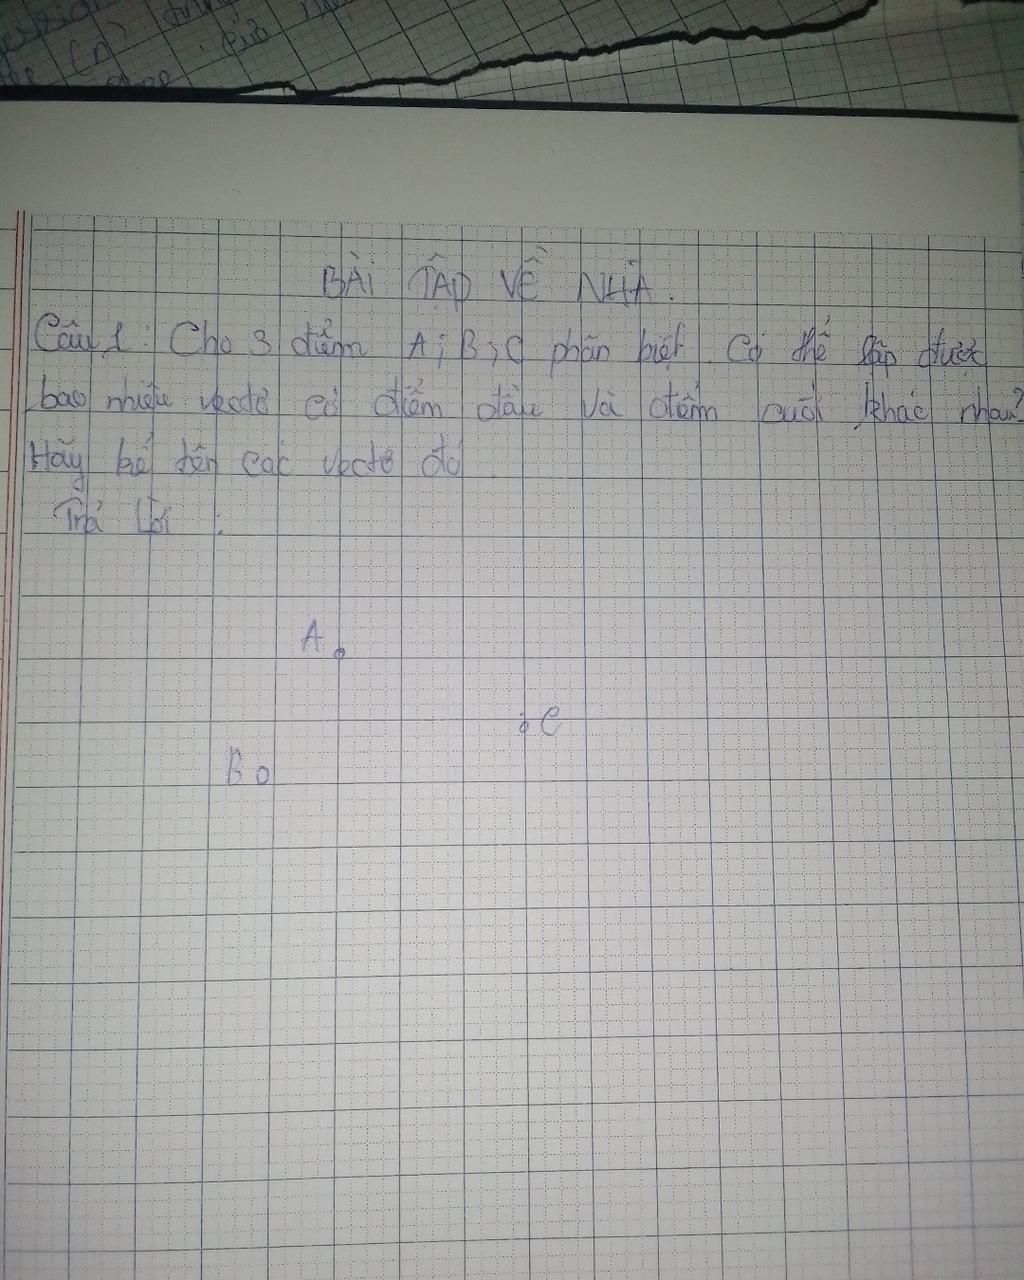 của
BÀI TẬP VỀ NHÀ.
Câu 1: Cho 3 điểm A; B; C phân biệt. Có thể lập được
bao nhiêu vectơ có điểm đầu và điểm cuối khác nhau?
Hãy kể tên các vectơ đó
Trả lời :
A
C
B